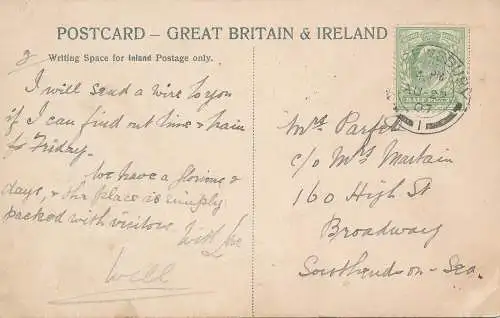 POSTCARD – GREAT BRITAIN & IRELAND
2
Writing Space for Inland Postage only.
I will send a wire to you
if I can find out time & train
for Friday.
We have a glorious 2
days, & the place is simply
packed with visitors.
With love
Will
Mrs Parfett
c/o Mrs Martain
160 High St
Broadway
Southend-on-Sea.
PM
AU 29
07
1